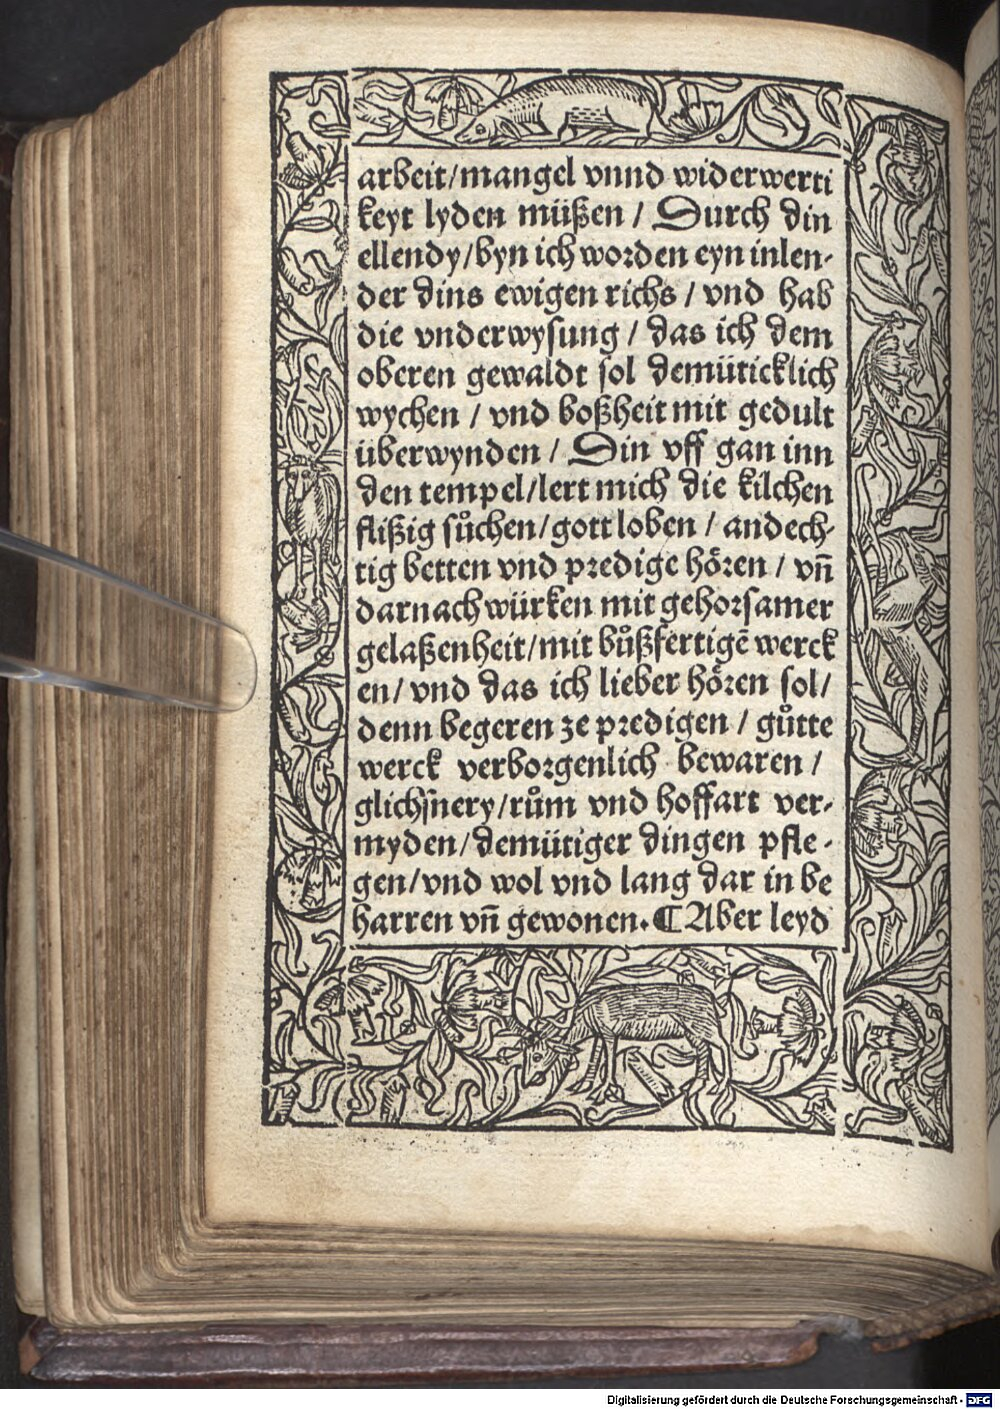 arbeit/mangel vnnd widerwerti
keyt lyden müßen / Durch din
ellendy/byn ich worden eyn inlen-
der dins ewigen richs / vnd hab
die vnderwysung / das ich dem
oberen gewaldt sol demüticklich
wychen / vnd boßheit mit gedult
überwynden / Din vff gan inn
den tempel/lert mich die kilchen
flißig sůchen/gott loben / andech-
tig betten vnd predige hören / vn̄
darnach würken mit gehorsamer
gelaßenheit/mit bůßfertigē werck
en/ vnd das ich lieber hören sol/
denn begeren ze predigen / gůtte
werck verborgenlich bewaren /
glichßnery/rům vnd hoffart ver-
myden/demütiger dingen pfle-
gen/vnd wol vnd lang dar in be
harren vn̄ gewonen. ¶ Aber leyd
Digitalisierung gefördert durch die Deutsche Forschungsgemeinschaft - DFG